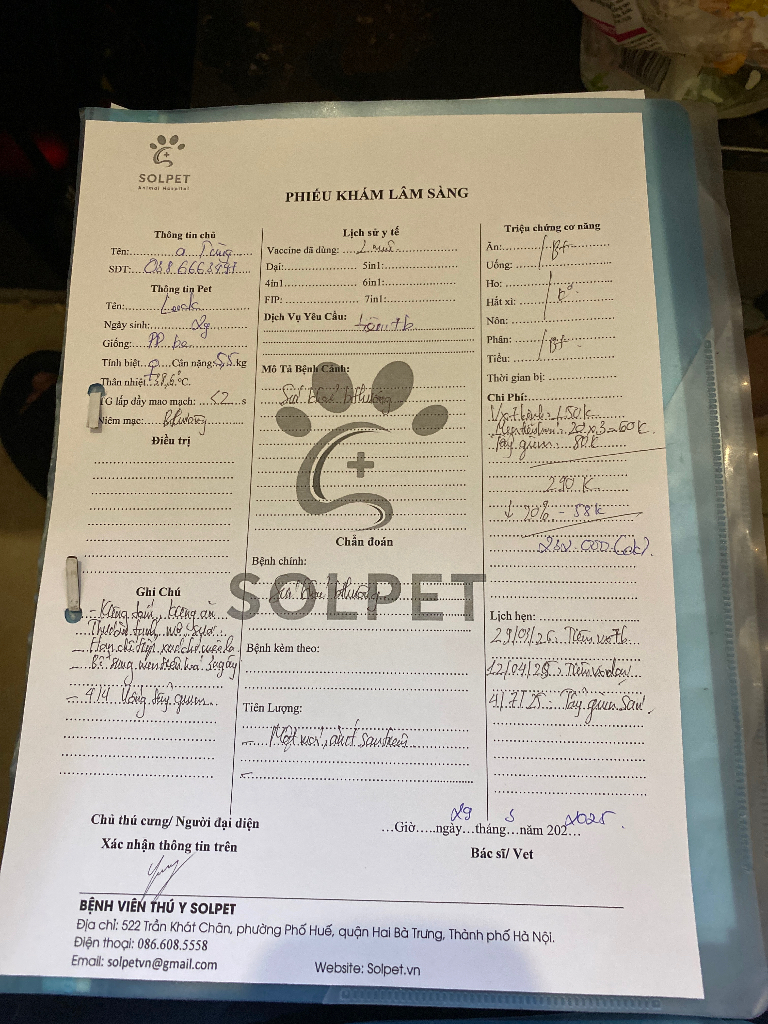 SOLPET
Animal Hospital
PHIẾU KHÁM LÂM SÀNG
Thông tin chủ
Tên: a Tùng
SDT:
Thông tin Pet
Tên:
Ngày sinh: 2g
Giống: PP ba
Tính biệt: ♀ Cân nặng: 5,5 kg
Thân nhiệt: 38,6 °C.
TG lấp đầy mao mạch: <2 s
Niêm mạc: Bthường
Điều trị
Ghi Chú
- Kiêng tắm, kiêng ăn
- 4/4 Uống tẩy giun
Lịch sử y tế
Vaccine đã dùng: 2 mũi
Dại: 5in1:
4in1 6in1:
FIP: 7in1:
Dịch Vụ Yêu Cầu: tiêm tb
Mô Tả Bệnh Cảnh:
Sức khoẻ bthường
SOLPET
Chẩn đoán
Bệnh chính:
Sức khoẻ bthường
Bệnh kèm theo:
Tiên Lượng:
Triệu chứng cơ năng
Ăn: Bt
Uống:
Ho:
Hắt xì:
Nôn:
Phân: Bt
Tiểu:
Thời gian bị:
Chi Phí:
150K
20 x 3 = 60K
Tẩy giun: 80K
290K
↓ 20% - 58K
232.000 (ck)
Lịch hẹn:
12/04/25: Tiêm
4/7/25: Tẩy giun sau
Chủ thú cưng/ Người đại diện
Xác nhận thông tin trên
...Giờ.....ngày 29 tháng 3 năm 202... 2025
Bác sĩ/ Vet
BỆNH VIÊN THÚ Y SOLPET
Địa chỉ: 522 Trần Khát Chân, phường Phố Huế, quận Hai Bà Trưng, Thành phố Hà Nội.
Điện thoại: 086.608.5558
Email: solpetvn@gmail.com Website: Solpet.vn